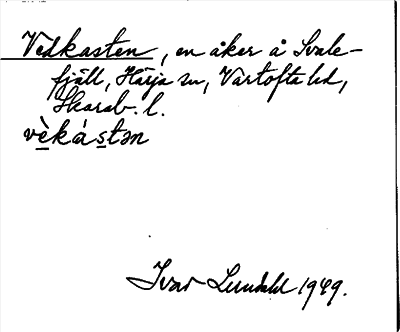 Vedkasten, en åker å Svale-
fjäll, Härja sn, Vartofta hd,
Skarab. l.
vèkástən
Ivar Lundahl 1949.